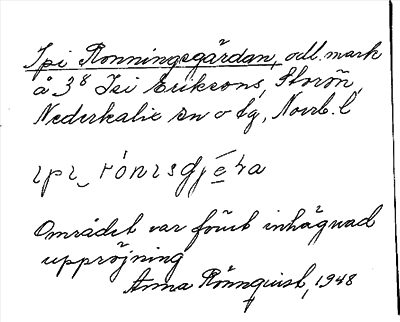 Ipi Ronningsgärdan, odl. mark
å 3⁸ Isi Eriksons, Storön,
Nederkalix sn o lg, Norrb. l
ɩpɩ‿ rónɩsgjɛ̄ra
Området var förut inhägnad
uppröjning
Anna Rönnquist, 1948